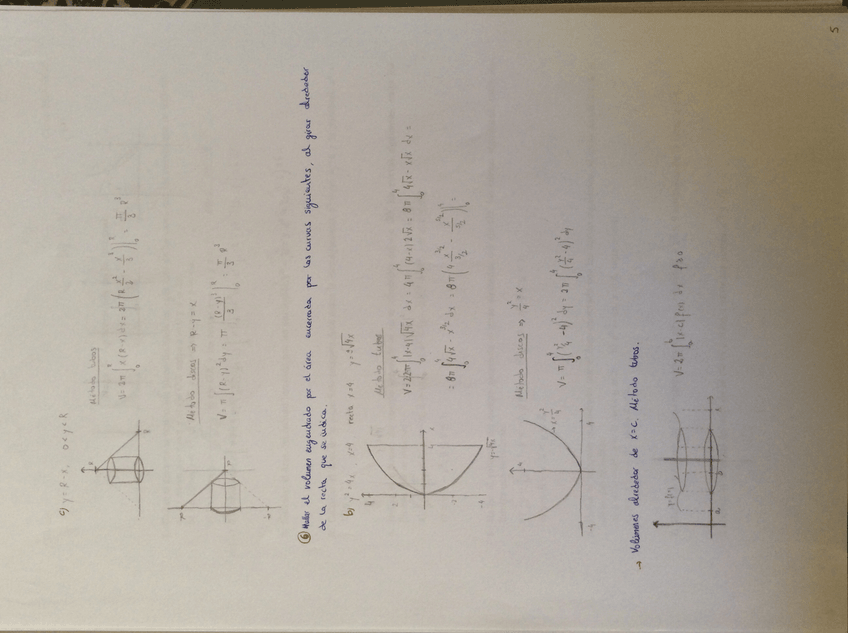 5
c) y = R - x, 0 < y < R
Método tubos
V = 2π ∫₀ᴿ x (R-x) dx = 2π (R x²/2 - x³/3)|₀ᴿ = π/3 R³
Método discos ⇒ R-y = x
V = π ∫ (R-y)² dy = π (R-y)³/3 |₀ᴿ = π/3 R³
⑥ Hallar el volumen engendrado por el área encerrada por las curvas siguientes, al girar alrededor
de la recta que se indica.
b) y² = 4x, x=4 recta x=4 y = ±√4x
Método tubos
V = 2·2π ∫₀⁴ |x-4| √4x dx = 4π ∫₀⁴ (4-x) 2√x = 8π ∫₀⁴ 4√x - x√x dx =
= 8π ∫₀⁴ 4√x - x^3/2 dx = 8π (4 x^3/2/3/2 - x^5/2/5/2)|₀⁴ =
Método discos ⇒ y²/4 = x
V = π ∫ (y²/4 - 4)² dy = 2π ∫₀⁴ (y²/4 - 4)² dy
→ Volúmenes alrededor de x=c. Método tubos.
V = 2π ∫ₐᵇ |x-c| f(x) dx f≥0